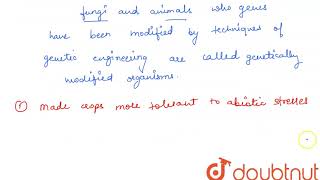 fungi and animals who genes
have been modified by techniques of
genetic engineering are called genetically
modified organisms.
① Made crops more tolerant to abiotic stresses
doubtnut